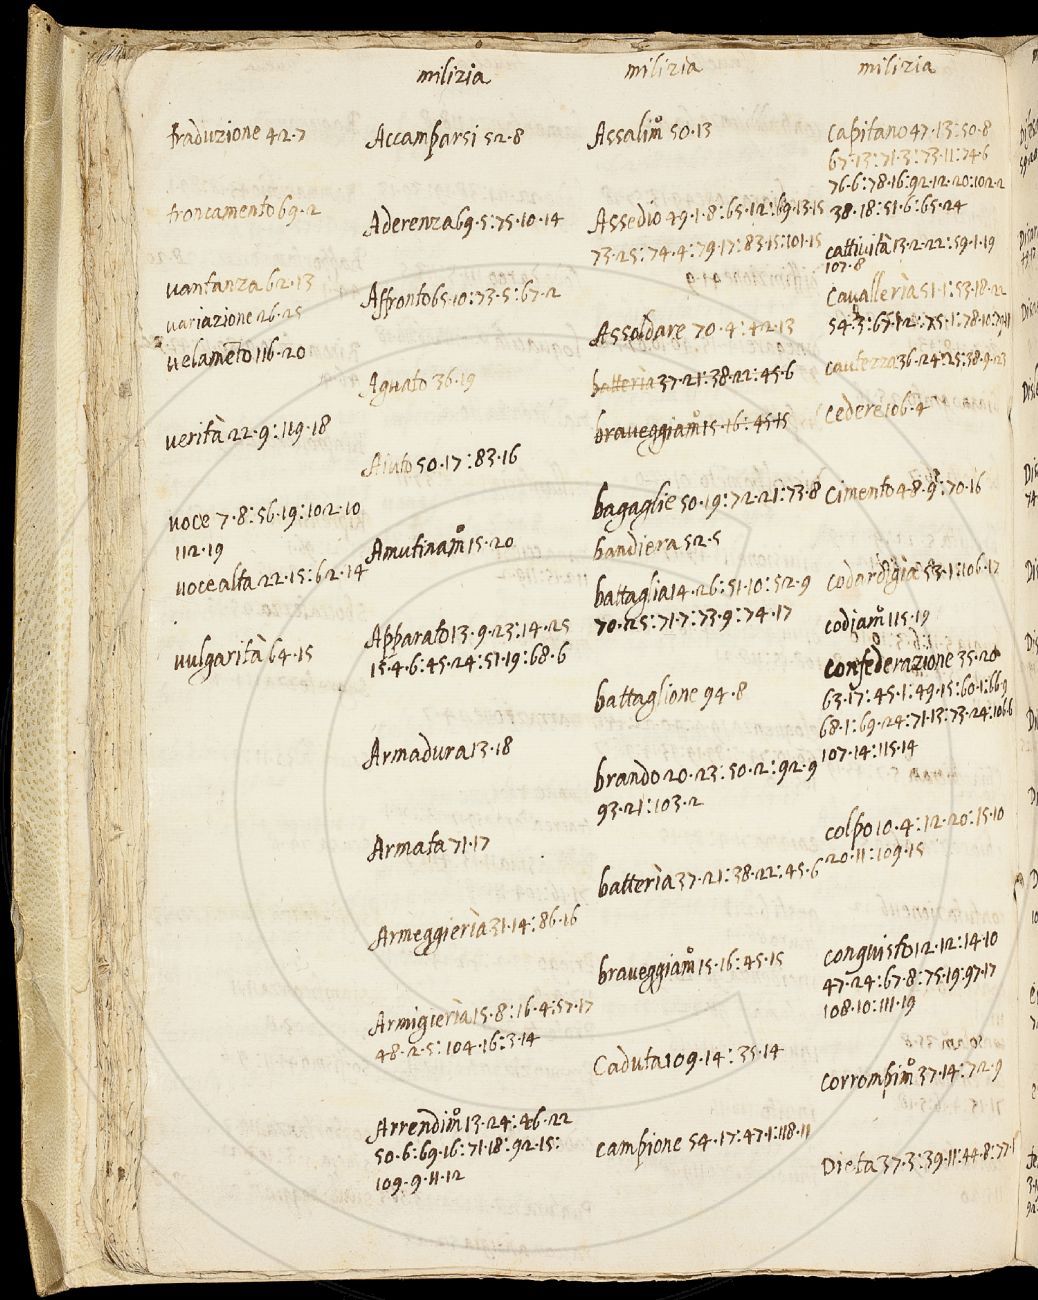 traduzione 42·7
troncamento 69·2
vantanza 62·13
variazione 26·25
velamẽto 116·20
verità 22·9:119·18
voce 7·8:56·19:102·10
112·19
voce alta 22·15:62·14
vulgarità 64·15
milizia
Accamparsi 52·8
Aderenza 69·5:75·10·14
Affronto 65·10:73·5:67·2
Aguato 36·19
Aiuto 50·17:83·16
Amutinam̊ 15·20
Apparato 13·9·23:14·25
15·4·6:45·24:51·19:68·6
Armadura 13·18
Armata 71·17
Armeggierìa 31·14:86·16
Armigierìa 15·8:16·4:57·17
48·2·5:104·16:3·14
Arrendim̊ 13·24:46·22
50·6:69·16:71·18:92·15:
109·9·11·12
milizia
Assalim̊ 50·13
Assedio 49·1·8:65·12:69·13·15
73·25:74·4:79·17:83·15:101·15
Assoldare 70·4:42·13
batterìa 37·21:38·22:45·6
braveggiam̊ 15·16:45·15
bagaglie 50·19:72·21:73·8
bandiera 52·5
battaglia 14·26:51·10:52·9
70·25:71·7:73·9:74·17
battaglione 94·8
brando 20·23:50·2:92·9
93·21:103·2
batterìa 37·21:38·22:45·6
braveggiam̊ 15·16:45·15
Caduta 109·14:35·14
campione 54·17:47·1:118·11
milizia
capitano 47·13:50·8
67·13:71·3:73·11:74·6
76·6:78·16:92·12·20:102·2
38·18:51·6:65·24
cattività 13·2·22:59·1·19
107·8
Cavallerìa 51·1:53·18·22
54·3:65·12:75·1:78·10:79·11
cautezza 36·24·25:38·9·23
cedere 106·4
Cimento 48·9:70·16
codardigia 53·1:106·17
codiam̊ 115·19
confederazione 35·20
63·17:45·1:49·15:60·1:66·9
68·1:69·24:71·13:73·24:106·6
107·14:115·14
colpo 10·4:12·20:15·10
20·11:109·15
conquisto 12·12:14·10
47·24:67·8:75·19:97·17
108·10:111·19
corrompim̊ 37·14:72·9
Dieta 37·3:39·11:44·8:77·1